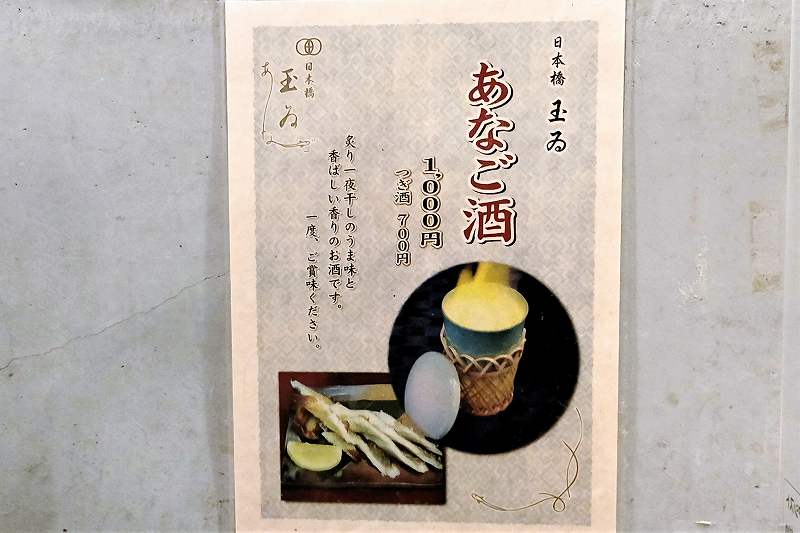 日本橋 玉ゐ
あなご酒
1,000円
つぎ酒 700円
炙り一夜干しのうま味と
香ばしい香りのお酒です。
一度、ご賞味ください。
日本橋
玉ゐ